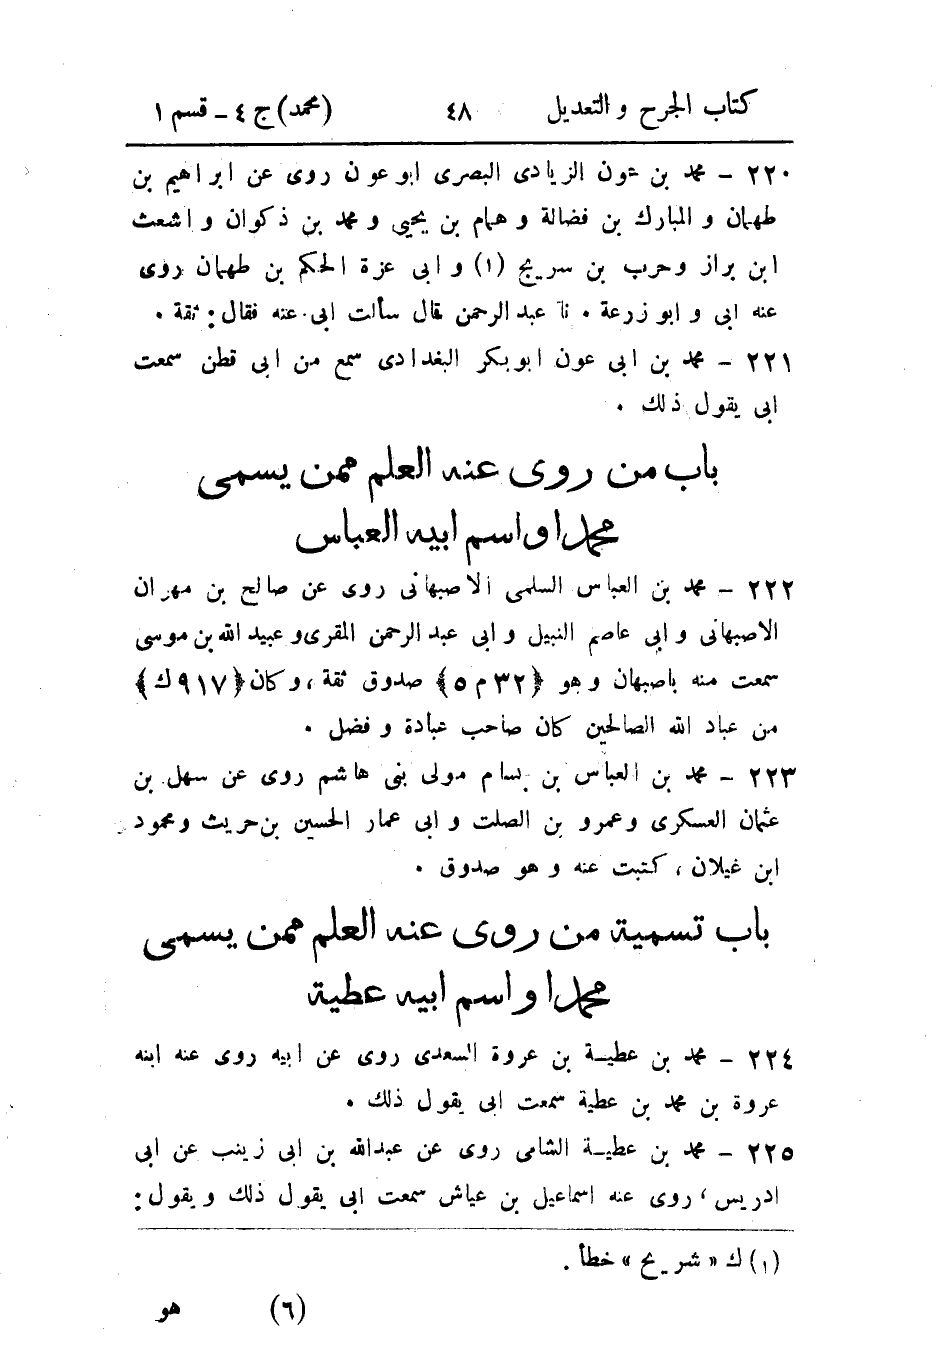 كتاب الجرح و التعديل ٤٨ (محمد) ج ٤ ـ قسم ١
٢٢٠ ـ محمد بن عون الزيادى البصرى ابو عون روى عن ابراهيم بن
طهمان و المبارك بن فضالة و همام بن يحيي و محمد بن ذكوان و اشعث
ابن براز وحرب بن سريج (١) و ابى عزة الحكم بن طهمان روى
عنه ابى و ابو زرعة . نا عبد الرحمن قال سألت ابى عنه فقال : ثقة .
٢٢١ ـ محمد بن ابى عون ابوبكر البغدادى سمع من ابى قطن سمعت
ابى يقول ذلك .
باب من روى عنه العلم ممن يسمى
محمدا و اسم ابيه العباس
٢٢٢ ـ محمد بن العباس السلمى الاصبهانى روى عن صالح بن مهران
الاصبهانى و ابي عاصم النبيل و ابى عبد الرحمن المقرى و عبيد الله بن موسى
سمعت منه باصبهان و هو ﴿٣٢ م ٥﴾ صدوق ثقة ، و كان ﴿٩١٧ ك﴾
من عباد الله الصالحين كان صاحب عبادة و فضل .
٢٢٣ ـ محمد بن العباس بن بسام مولى بنى هاشم روى عن سهل بن
عثمان العسكرى وعمرو بن الصلت و ابى عمار الحسين بن حريث و محمود
ابن غيلان ، كتبت عنه و هو صدوق .
باب تسمية من روى عنه العلم ممن يسمى
محمدا و اسم ابيه عطية
٢٢٤ ـ محمد بن عطيـة بن عروة السعدى روى عن ابيه روى عنه ابنه
عروة بن محمد بن عطية سمعت ابى يقول ذلك .
٢٢٥ ـ محمد بن عطيـة الشامى روى عن عبدالله بن ابى زينب عن ابى
ادريس ، روى عنه اسماعيل بن عياش سمعت ابى يقول ذلك و يقول :
(١) ك « شريح » خطأ .
(٦) هو